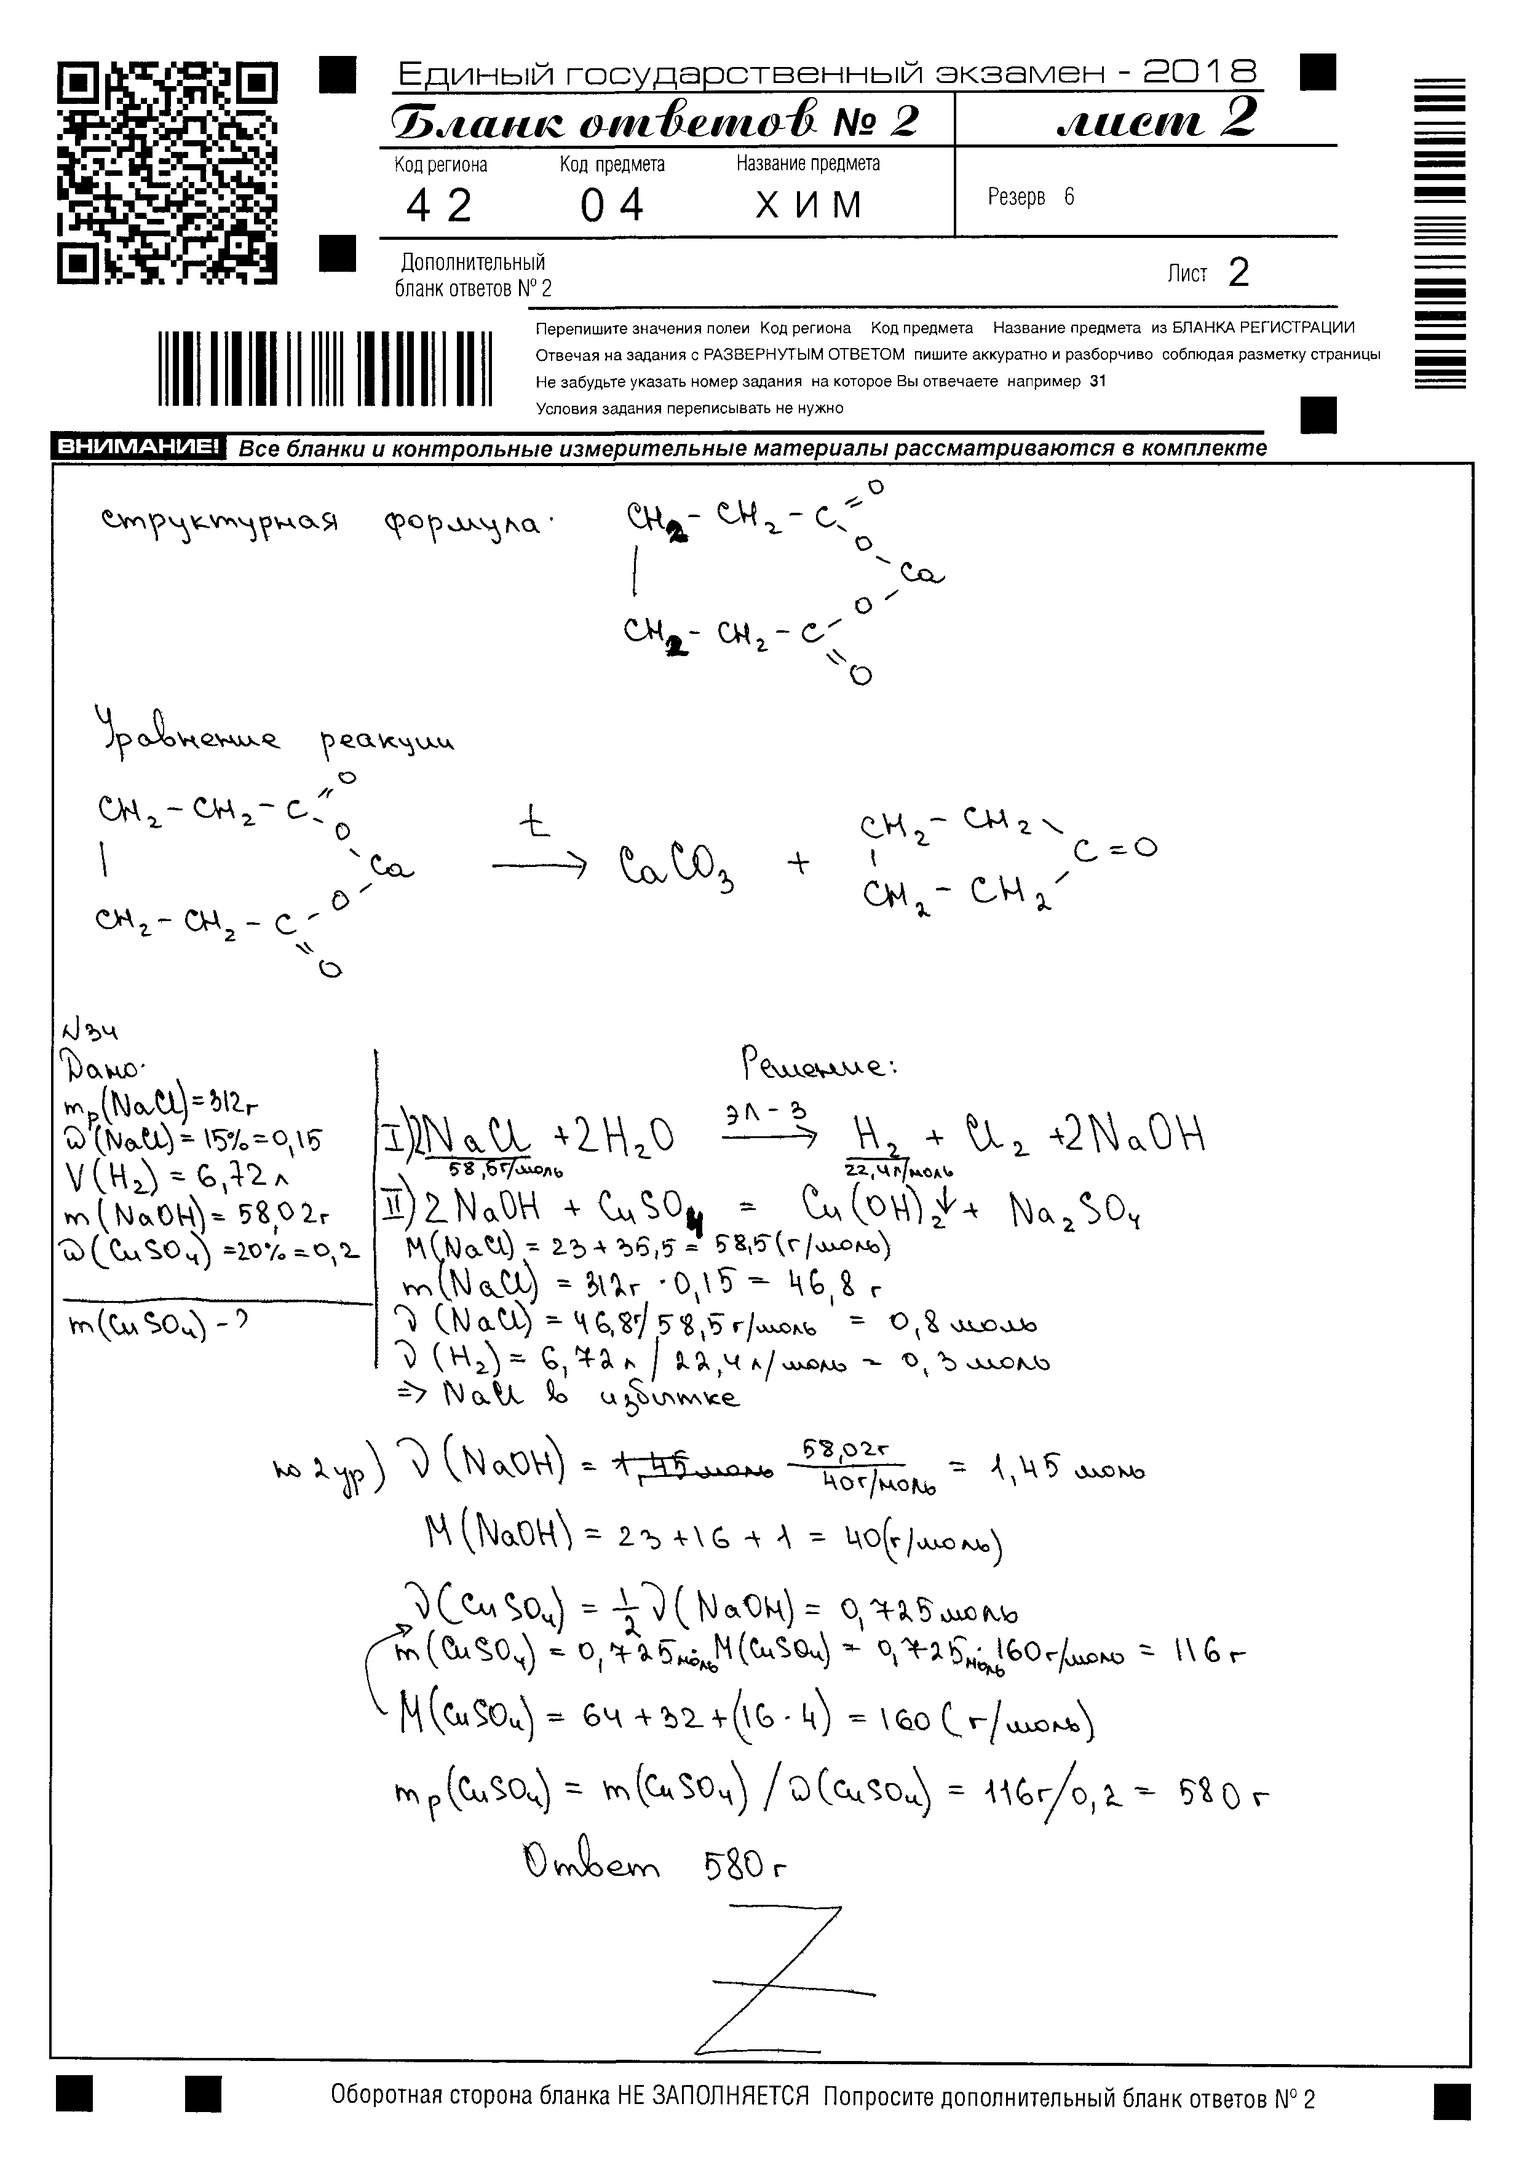 Единый государственный экзамен - 2018
Бланк ответов № 2 лист 2
Код региона Код предмета Название предмета
42 04 ХИМ Резерв 6
Дополнительный
бланк ответов № 2 Лист 2
Перепишите значения полеи Код региона Код предмета Название предмета из БЛАНКА РЕГИСТРАЦИИ
Отвечая на задания с РАЗВЕРНУТЫМ ОТВЕТОМ пишите аккуратно и разборчиво соблюдая разметку страницы
Не забудьте указать номер задания на которое Вы отвечаете например 31
Условия задания переписывать не нужно
ВНИМАНИЕ! Все бланки и контрольные измерительные материалы рассматриваются в комплекте
структурная формула.
CH2 - CH2 - C = O
- O - Ca
|
- O
CH2 - CH2 - C = O
Уравнение реакции
CH2 - CH2 - C = O
- O - Ca
|
- O
CH2 - CH2 - C = O
t → CaCO3 +
CH2 - CH2
| C = O
CH2 - CH2
N34
Дано.
mр(NaCl) = 312г
ω(NaCl) = 15% = 0,15
V(H2) = 6,72 л
m(NaOH) = 58,02г
ω(CuSO4) = 20% = 0,2
m(CuSO4) - ?
Решение:
I) 2NaCl + 2H2O эл-з → H2 + Cl2 + 2NaOH
58,5г/моль 22,4л/моль
II) 2NaOH + CuSO4 = Cu(OH)2↓ + Na2SO4
M(NaCl) = 23 + 35,5 = 58,5 (г/моль)
m(NaCl) = 312г · 0,15 = 46,8 г
ν(NaCl) = 46,8г/58,5г/моль = 0,8 моль
ν(H2) = 6,72 л / 22,4 л/моль = 0,3 моль
=> NaCl в избытке
по 2 ур) ν(NaOH) = 1,45 моль 58,02г / 40г/моль = 1,45 моль
M(NaOH) = 23 + 16 + 1 = 40(г/моль)
ν(CuSO4) = 1/2 ν(NaOH) = 0,725 моль
m(CuSO4) = 0,725 моль · M(CuSO4) = 0,725 моль · 160 г/моль = 116 г
M(CuSO4) = 64 + 32 + (16 · 4) = 160 (г/моль)
mр(CuSO4) = m(CuSO4) / ω(CuSO4) = 116г/0,2 = 580 г
Ответ 580 г
Z
Оборотная сторона бланка НЕ ЗАПОЛНЯЕТСЯ Попросите дополнительный бланк ответов № 2